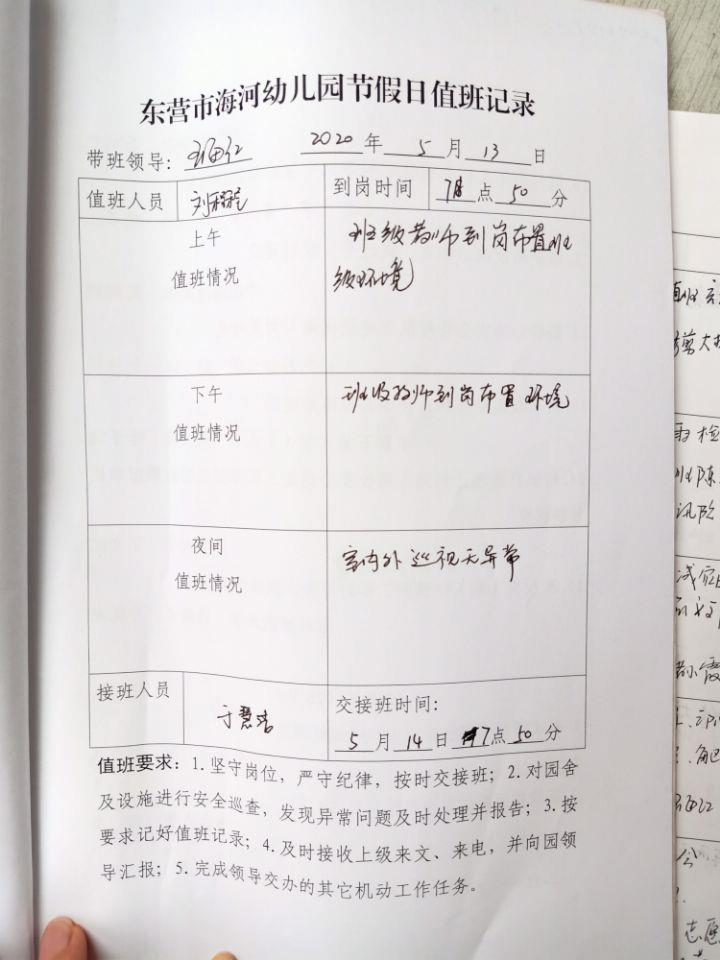 东营市海河幼儿园节假日值班记录
带班领导: 2020年5月13日
值班人员 刘 到岗时间 7点50分
上午
值班情况
班级教师到岗布置班
级环境
下午
值班情况
班级教师到岗布置环境
夜间
值班情况
室内外巡视无异常
接班人员 于慧洁
交接班时间:
5月14日7点50分
值班要求: 1.坚守岗位,严守纪律,按时交接班; 2.对园舍
及设施进行安全巡查,发现异常问题及时处理并报告; 3.按
要求记好值班记录; 4.及时接收上级来文、来电,并向园领
导汇报; 5.完成领导交办的其它机动工作任务。